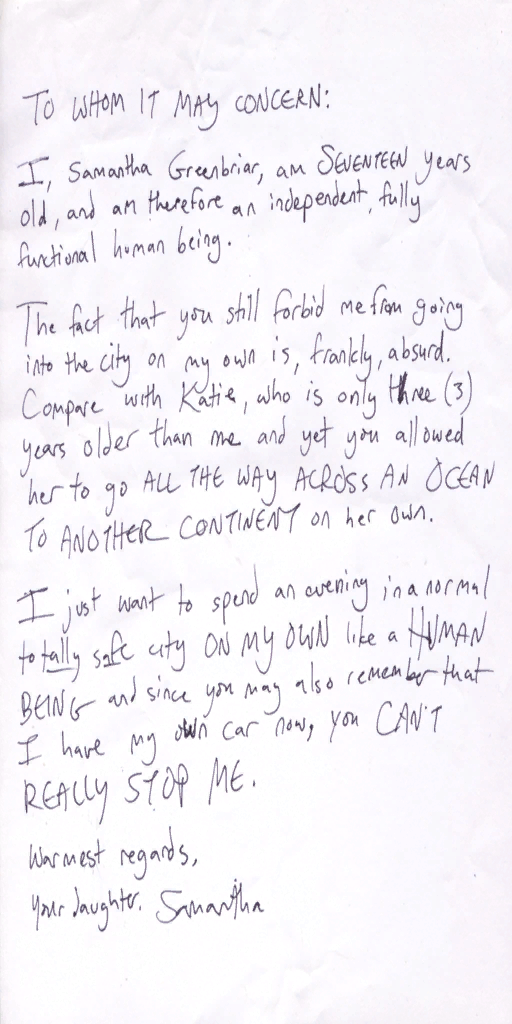 TO WHOM IT MAY CONCERN:
I, Samantha Greenbriar, am SEVENTEEN years
old, and am therefore an independent, fully
functional human being.
The fact that you still forbid me from going
into the city on my own is, frankly, absurd.
Compare with Katie, who is only three (3)
years older than me and yet you allowed
her to go ALL THE WAY ACROSS AN OCEAN
TO ANOTHER CONTINENT on her own.
I just want to spend an evening in a normal
totally safe city ON MY OWN like a HUMAN
BEING and since you may also remember that
I have my own car now, you CAN'T
REALLY STOP ME.
Warmest regards,
your daughter. Samantha